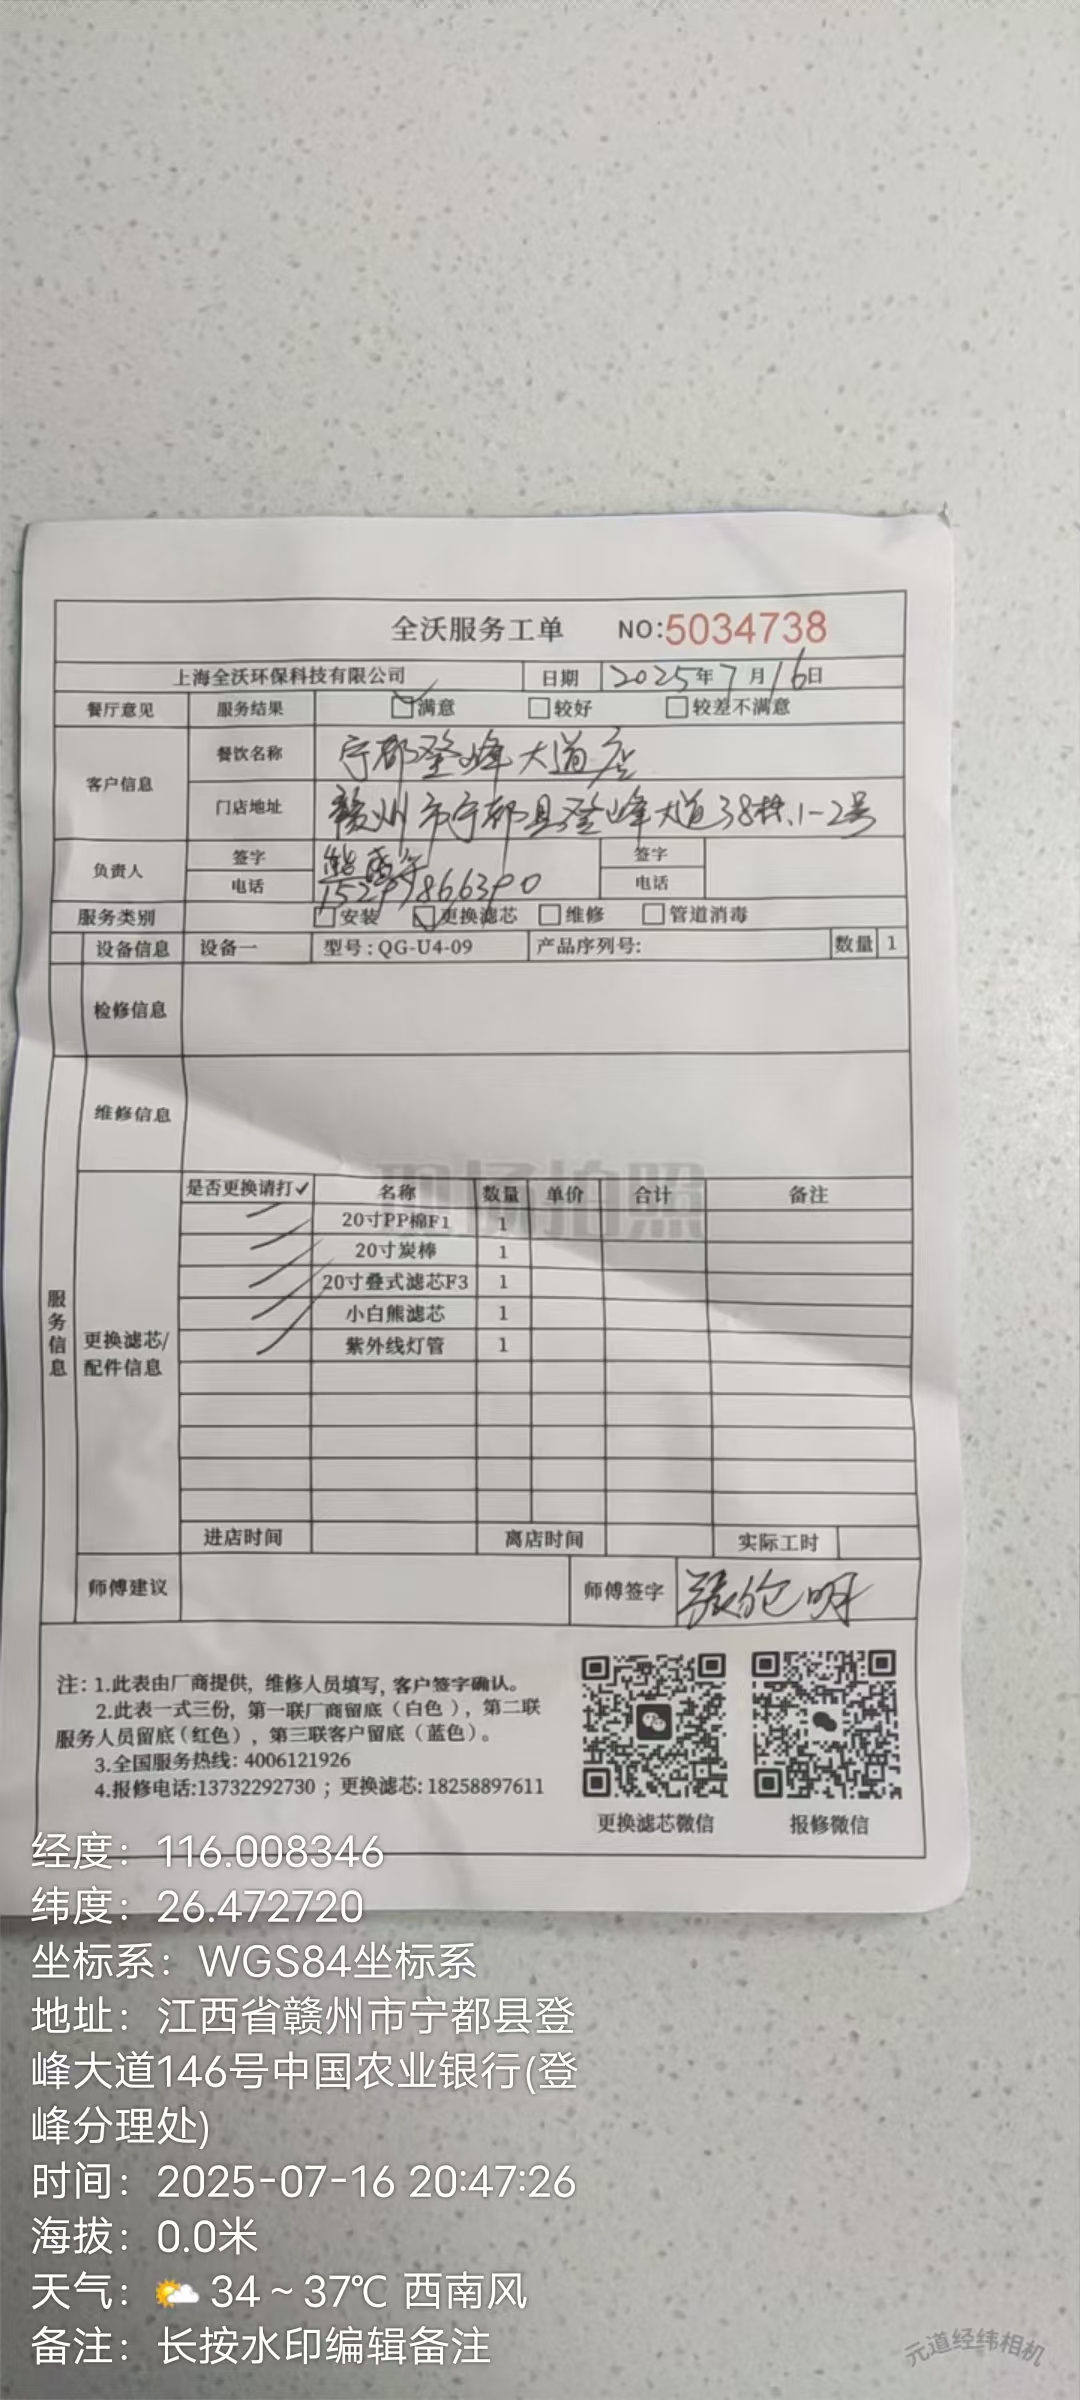 全沃服务工单 NO:5034738
上海全沃环保科技有限公司 日期 2025年7月16日
餐厅意见 服务结果 满意 较好 较差不满意
客户信息 餐饮名称 宁都登峰大道店
门店地址 赣州市宁都县登峰大道38栋、1-2号
负责人 签字 签字
电话 电话
服务类别 安装 更换滤芯 维修 管道消毒
设备信息 设备一 型号:QG-U4-09 产品序列号: 数量 1
检修信息
维修信息
现场拍照
服务信息
更换滤芯/配件信息
是否更换请打✓ 名称 数量 单价 合计 备注
20寸PP棉F1 1
20寸炭棒 1
20寸叠式滤芯F3 1
小白熊滤芯 1
紫外线灯管 1
进店时间 离店时间 实际工时
师傅建议 师傅签字
注: 1.此表由厂商提供, 维修人员填写, 客户签字确认。
2.此表一式三份, 第一联厂商留底(白色), 第二联
服务人员留底(红色), 第三联客户留底(蓝色)。
3.全国服务热线: 4006121926
4.报修电话:13732292730 ; 更换滤芯: 18258897611
更换滤芯微信 报修微信
经度: 116.008346
纬度: 26.472720
坐标系: WGS84坐标系
地址: 江西省赣州市宁都县登
峰大道146号中国农业银行(登
峰分理处)
时间: 2025-07-16 20:47:26
海拔: 0.0米
天气: 34~37℃ 西南风
备注: 长按水印编辑备注
元道经纬相机